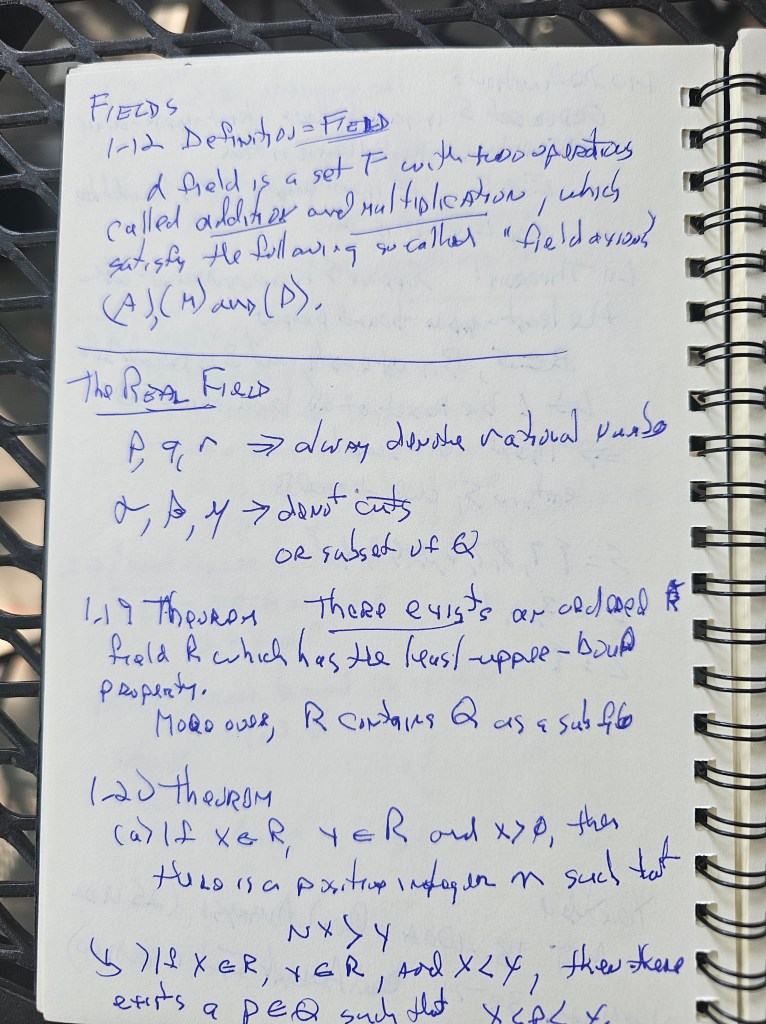 FIELDS
1-12 Definition = FIELD
A field is a set F with two operations
called addition and multiplication, which
satisfy the following so called "field axioms"
(A), (M) and (D).
The REAL FIELD
p, q, r ⇒ alway denote rational numbs
α, β, γ → denot cuts
OR subset of Q
1-19 Theorem There exists an ordered R
field R which has the least-upper-bound
property.
Moreover, R contains Q as a subfie
1-20 Theorem
(a) If x ∈ R, y ∈ R and x > 0, then
there is a positive integer n such that
nx > y
b) If x ∈ R, y ∈ R, and x < y, then there
exists a p ∈ Q such that x < p < y.